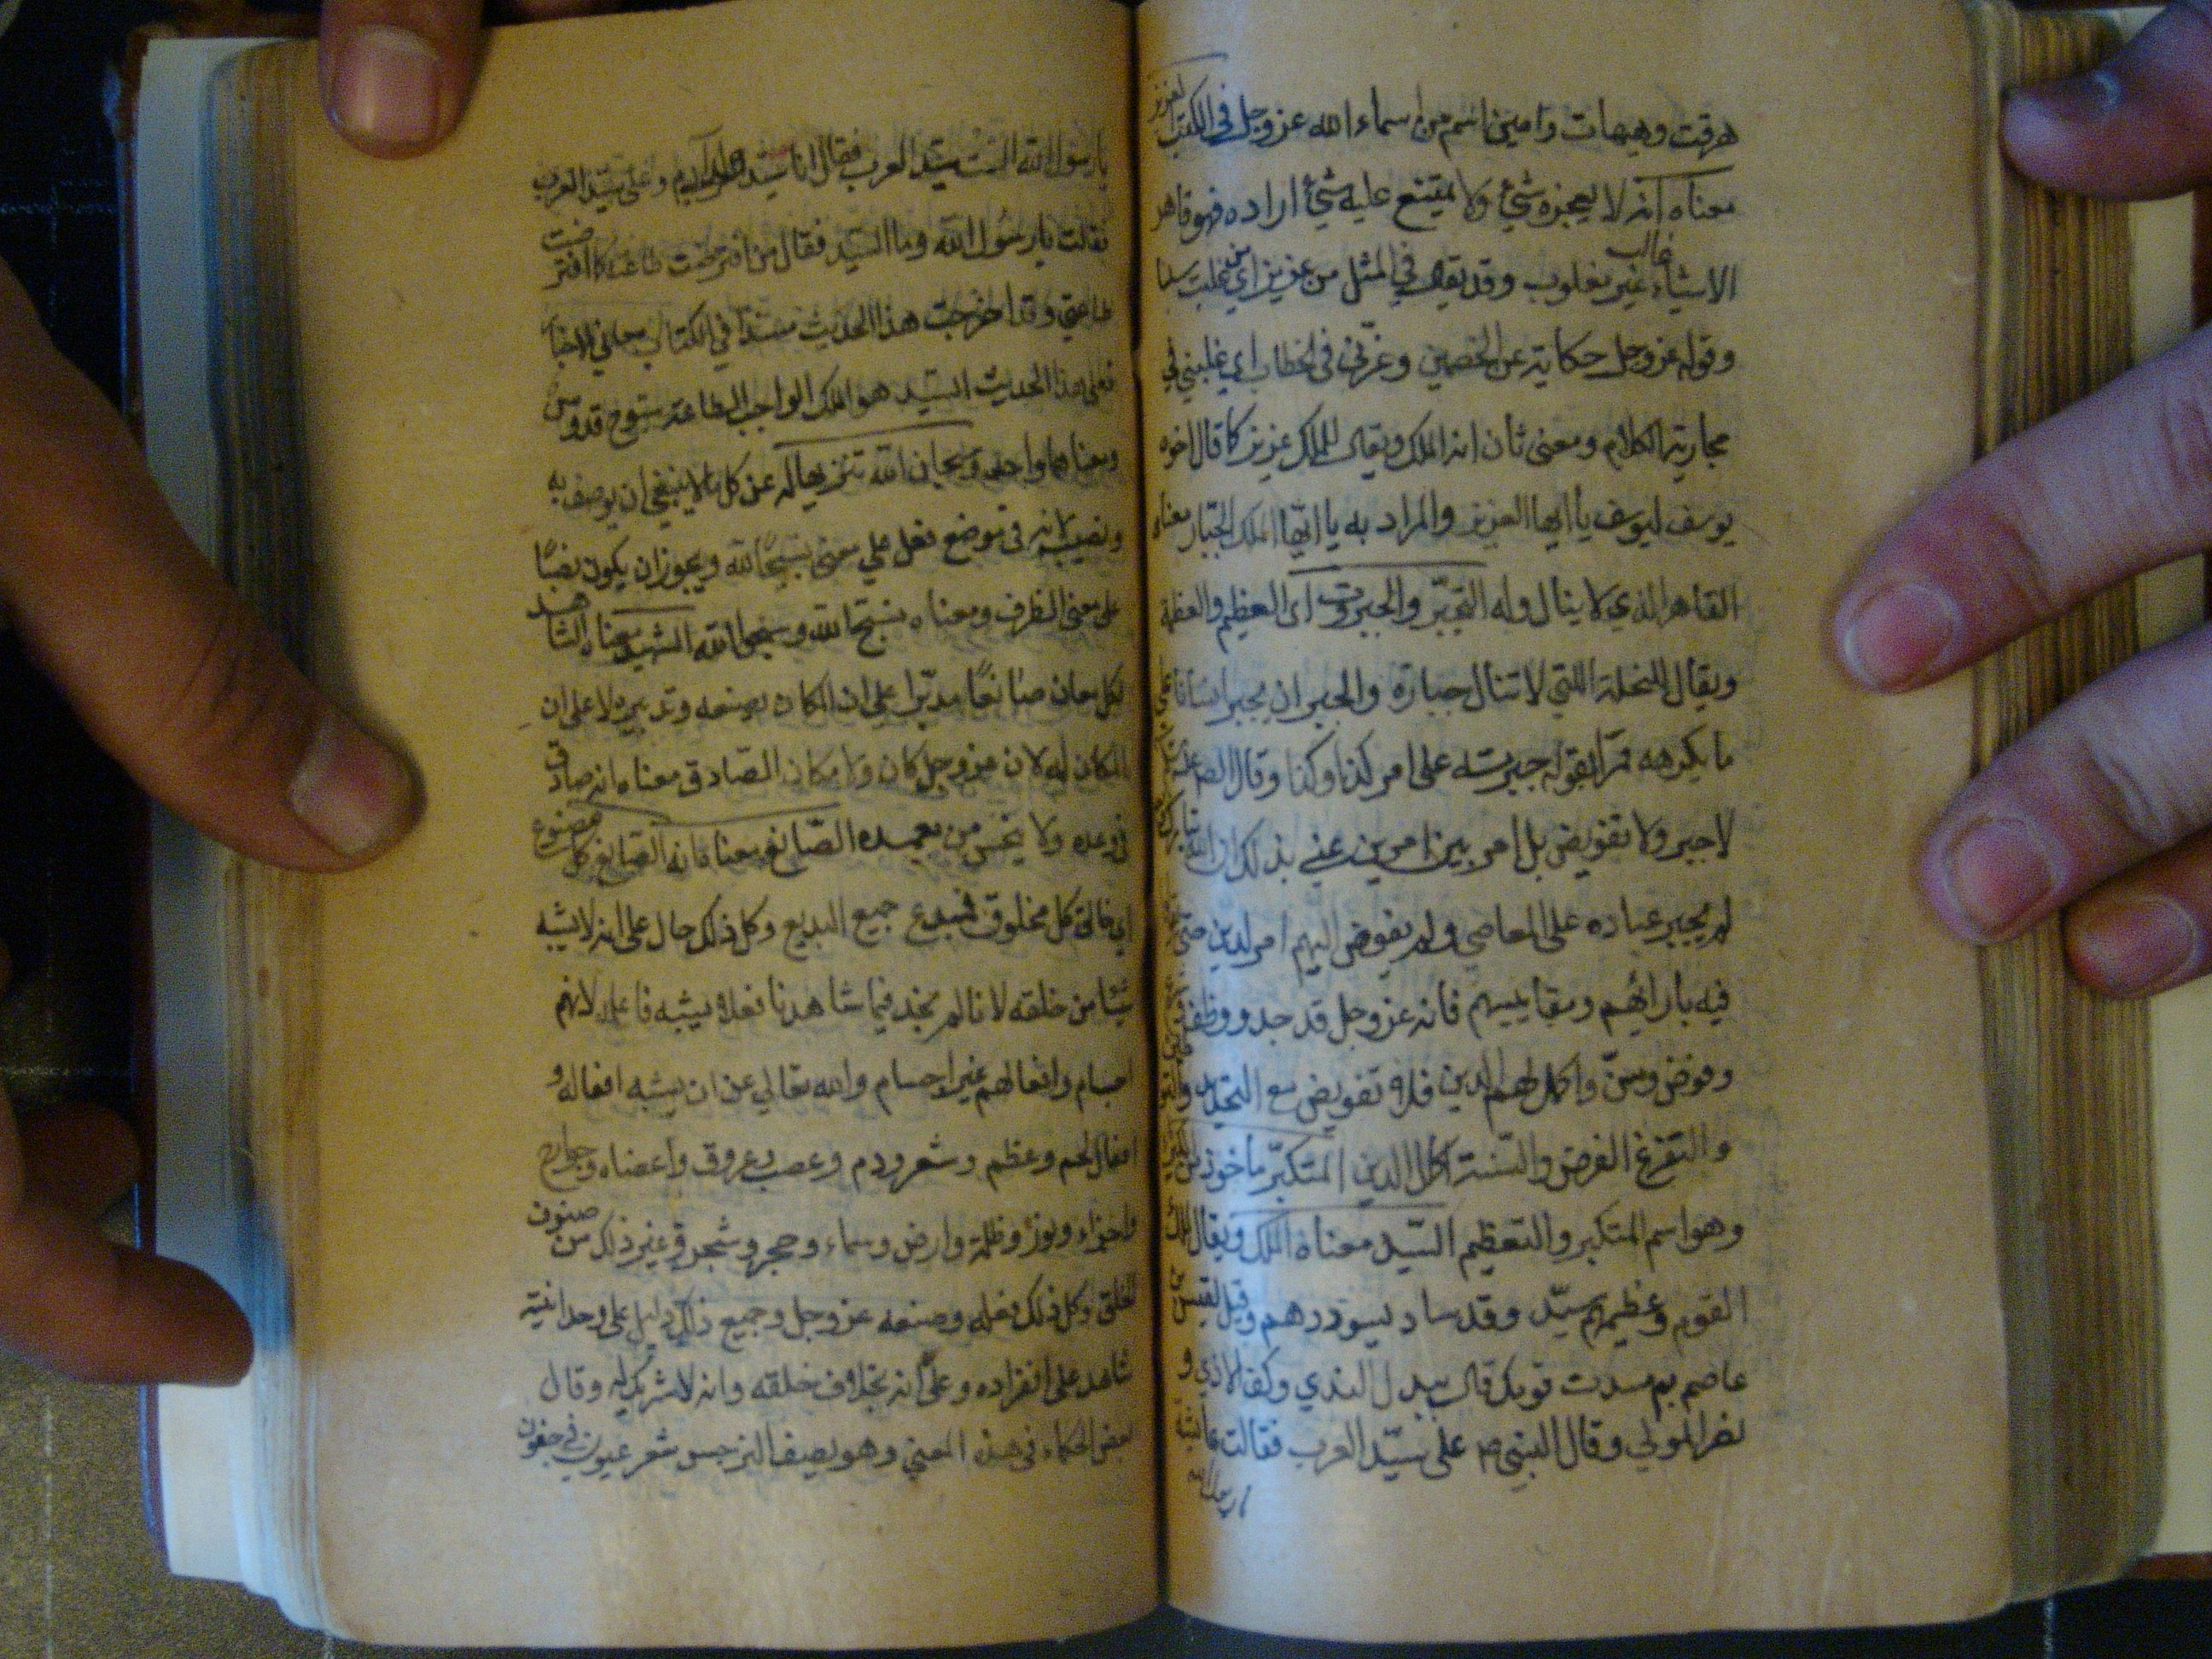 هرقت وهيهات وامين اسم من اسماء الله عز وجل في الكتاب العزيز
معناه انه لا يعجزه شئ ولا يمتنع عليه شئ اراده فهو قاهر
الاشياء غالب غير مغلوب وقد يقال في المثل من عز بز اي من غلب سلب
وقوله عز وجل حكاية عن الخصمين وعزني في الخطاب اي غلبني في
مجاربة الكلام ومعنى ثان انه الملك ويقال للملك عزيز كما قال اخوة
يوسف ليوسف يا ايها العزيز والمراد به يا ايها الملك الجبار معناه
القاهر الذي لا ينال وله التجبر والجبروت اي العظيم والعظمة
ويقال للنخلة اللتي لا تنال جبارة والجبر ان يجبر انسانا على
ما يكرهه قهرا بقوله جبرته على امر كذا وكذا وقال الصادق
لا جبر ولا تفويض بل امر بين امرين عني بذلك ان الله تبارك
لم يجبر عباده على المعاصي ولم يفوض اليهم امر الدين حتى
فيه بارائهم ومقاييسهم فانه عز وجل قد حد ووظف
وفرض وسن واكمل لهم الدين فلا تفويض مع التحديد
والتفرغ الفرض والسنة اكمال الدين المتكبر ماخوذ من
وهو اسم المتكبر والتعظيم السيد معناه الملك ويقال لملك
القوم وعظيمهم سيد وقد ساد يسودهم وقيل لقيس بن
عاصم بم سدت قومك قال ببذل الندي وكف الاذي و
نصر المولي وقال النبي ص علي سيد العرب فقالت عايشة
يا رسول الله
يا رسول الله الست سيد العرب فقال انا سيد ولد آدم وعلي سيد العرب
فقالت يا رسول الله وما السيد فقال من افترضت طاعته كما افترضت
طاعتي وقد اخرجت هذا الحديث مسندا في الكتاب معاني الاخبار
فعلى هذا الحديث السيد هو الملك الواجب الطاعة سبوح قدوس
ومعناهما واحد وسبحان الله تنزيها له عن كل ما لا ينبغي ان يوصف به
ونصبه لانه في موضع فعل علي معنى تسبيحا لله ويجوز ان يكون نصبا
على معنى الظرف ومعناه نسبح الله وسبحوا الله الشهيد معناه الشاهد
بكل مكان صانعا مدبرا على ان المكان بصنعه وتدبيره لا على ان
المكان له لان عز وجل كان ولا مكان الصادق معناه انه صادق
في وعده ولا يبخس من بعهده الصانع معناه انه الصانع كل مصنوع
اي خالق كل مخلوق فمبدع جميع البديع وكل ذلك دال على انه لا يشبه
شيئا من خلقه لانا لم نجد فيما شاهدنا فعلا يشبه فاعله لانهم
اجسام وافعالهم غير اجسام والله تعالي عن ان يشبه افعاله و
افعال لحم وعظم وشعر ودم وعصب وعروق واعضاء وجوارح
واجزاء ونور وظلمة وارض وسماء وحجر وشجر وغير ذلك من صنوف
الخلق وكل ذلك فعله وصنعه عز وجل وجميع ذلك دليل على وحدانيته
شاهد على انفراده وعلى انه بخلاف خلقه وانه لا شريك له وقال
بعض الحكماء في هذه المعني وهو يصف النرجس شعر عيون في جفون